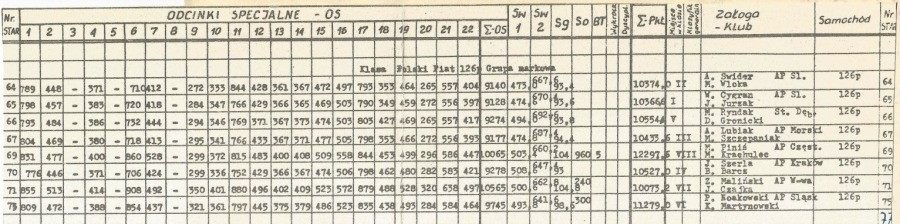 Nr. ODCINKI SPECJALNE - OS Św Św Sg So BT Wykrocz. Dyscypl. Σ-Pkt. Miejsce w klasie Klasyfik. generaln. Załoga Samochód Nr
STAR 1 2 3 4 5 6 7 8 9 10 11 12 13 14 15 16 17 18 19 20 21 22 Σ-OS 1 2 - Klub STAR
Klasa Polski Fiat 126p Grupa markowa
64 789 448 - 371 - 710 412 - 272 333 844 428 361 367 472 497 793 353 464 265 557 404 9140 473,8 667,6 93,4 10374,0 II A. Swider AP Sl. 126p 64
M. Wloka
65 798 457 - 383 - 720 418 - 284 347 766 429 366 365 469 503 790 349 459 272 556 397 9128 474,6 670,4 93,6 10366,6 I W. Cygan
J. Jurzak AP Sl. 126p 65
66 793 484 - 386 - 732 444 - 294 346 769 371 367 373 474 503 803 427 469 265 557 417 9274 494,0 692,6 93,8 10554,4 V M. Ryndak St. Dęb. 126p 66
D. Gronicki
67 804 469 - 380 - 718 413 - 295 341 766 433 367 371 477 505 798 353 466 272 556 393 9177 474,8 687,4 94,4 10433,6 III A. Lubiak AP Morski 126p 67
M. Szczepaniak
69 831 477 - 400 - 860 528 - 299 372 815 483 400 408 509 558 844 453 499 296 586 447 10065 503,4 660,2 104 960 5 12297,6 VIII M. Piniś AP Częst. 126p 69
70 776 446 - 371 - 706 424 - 299 336 752 429 366 367 474 506 798 462 480 282 583 421 9278 508,8 647,4 93,4 10527,0 IV J. Sserla AP Kraków 126p 70
B. Barcz
71 855 513 - 414 - 908 492 - 350 401 880 496 402 409 523 572 879 488 528 320 638 497 10565 500,6 662,8 104,8 240 12073,2 VII Z. Maliński AP W-wa 126p 71
J. Czajka
75 809 472 - 388 - 854 437 - 321 361 797 445 375 379 486 523 835 438 493 284 584 464 9745 493,8 641,6 98,6 300 11279,0 VI P. Noakowski AP Śląsk 126p 75
K. Martynowski
77